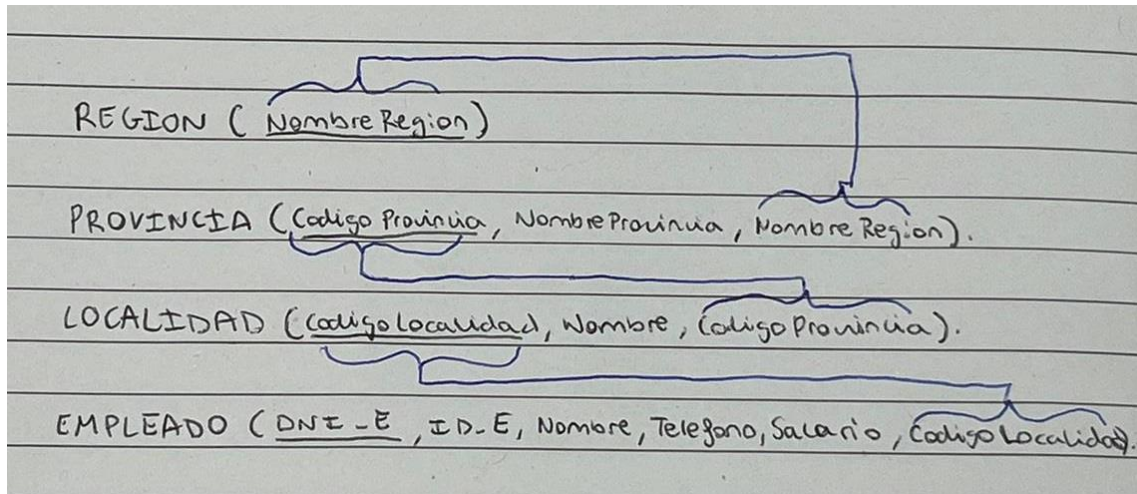 REGION ( Nombre Region)
PROVINCIA (Codigo Provincia, Nombre Provincia, Nombre Region).
LOCALIDAD (Codigo Localidad, Nombre, Codigo Provincia).
EMPLEADO (DNI_E, ID_E, Nombre, Telefono, Salario, Codigo Localidad).